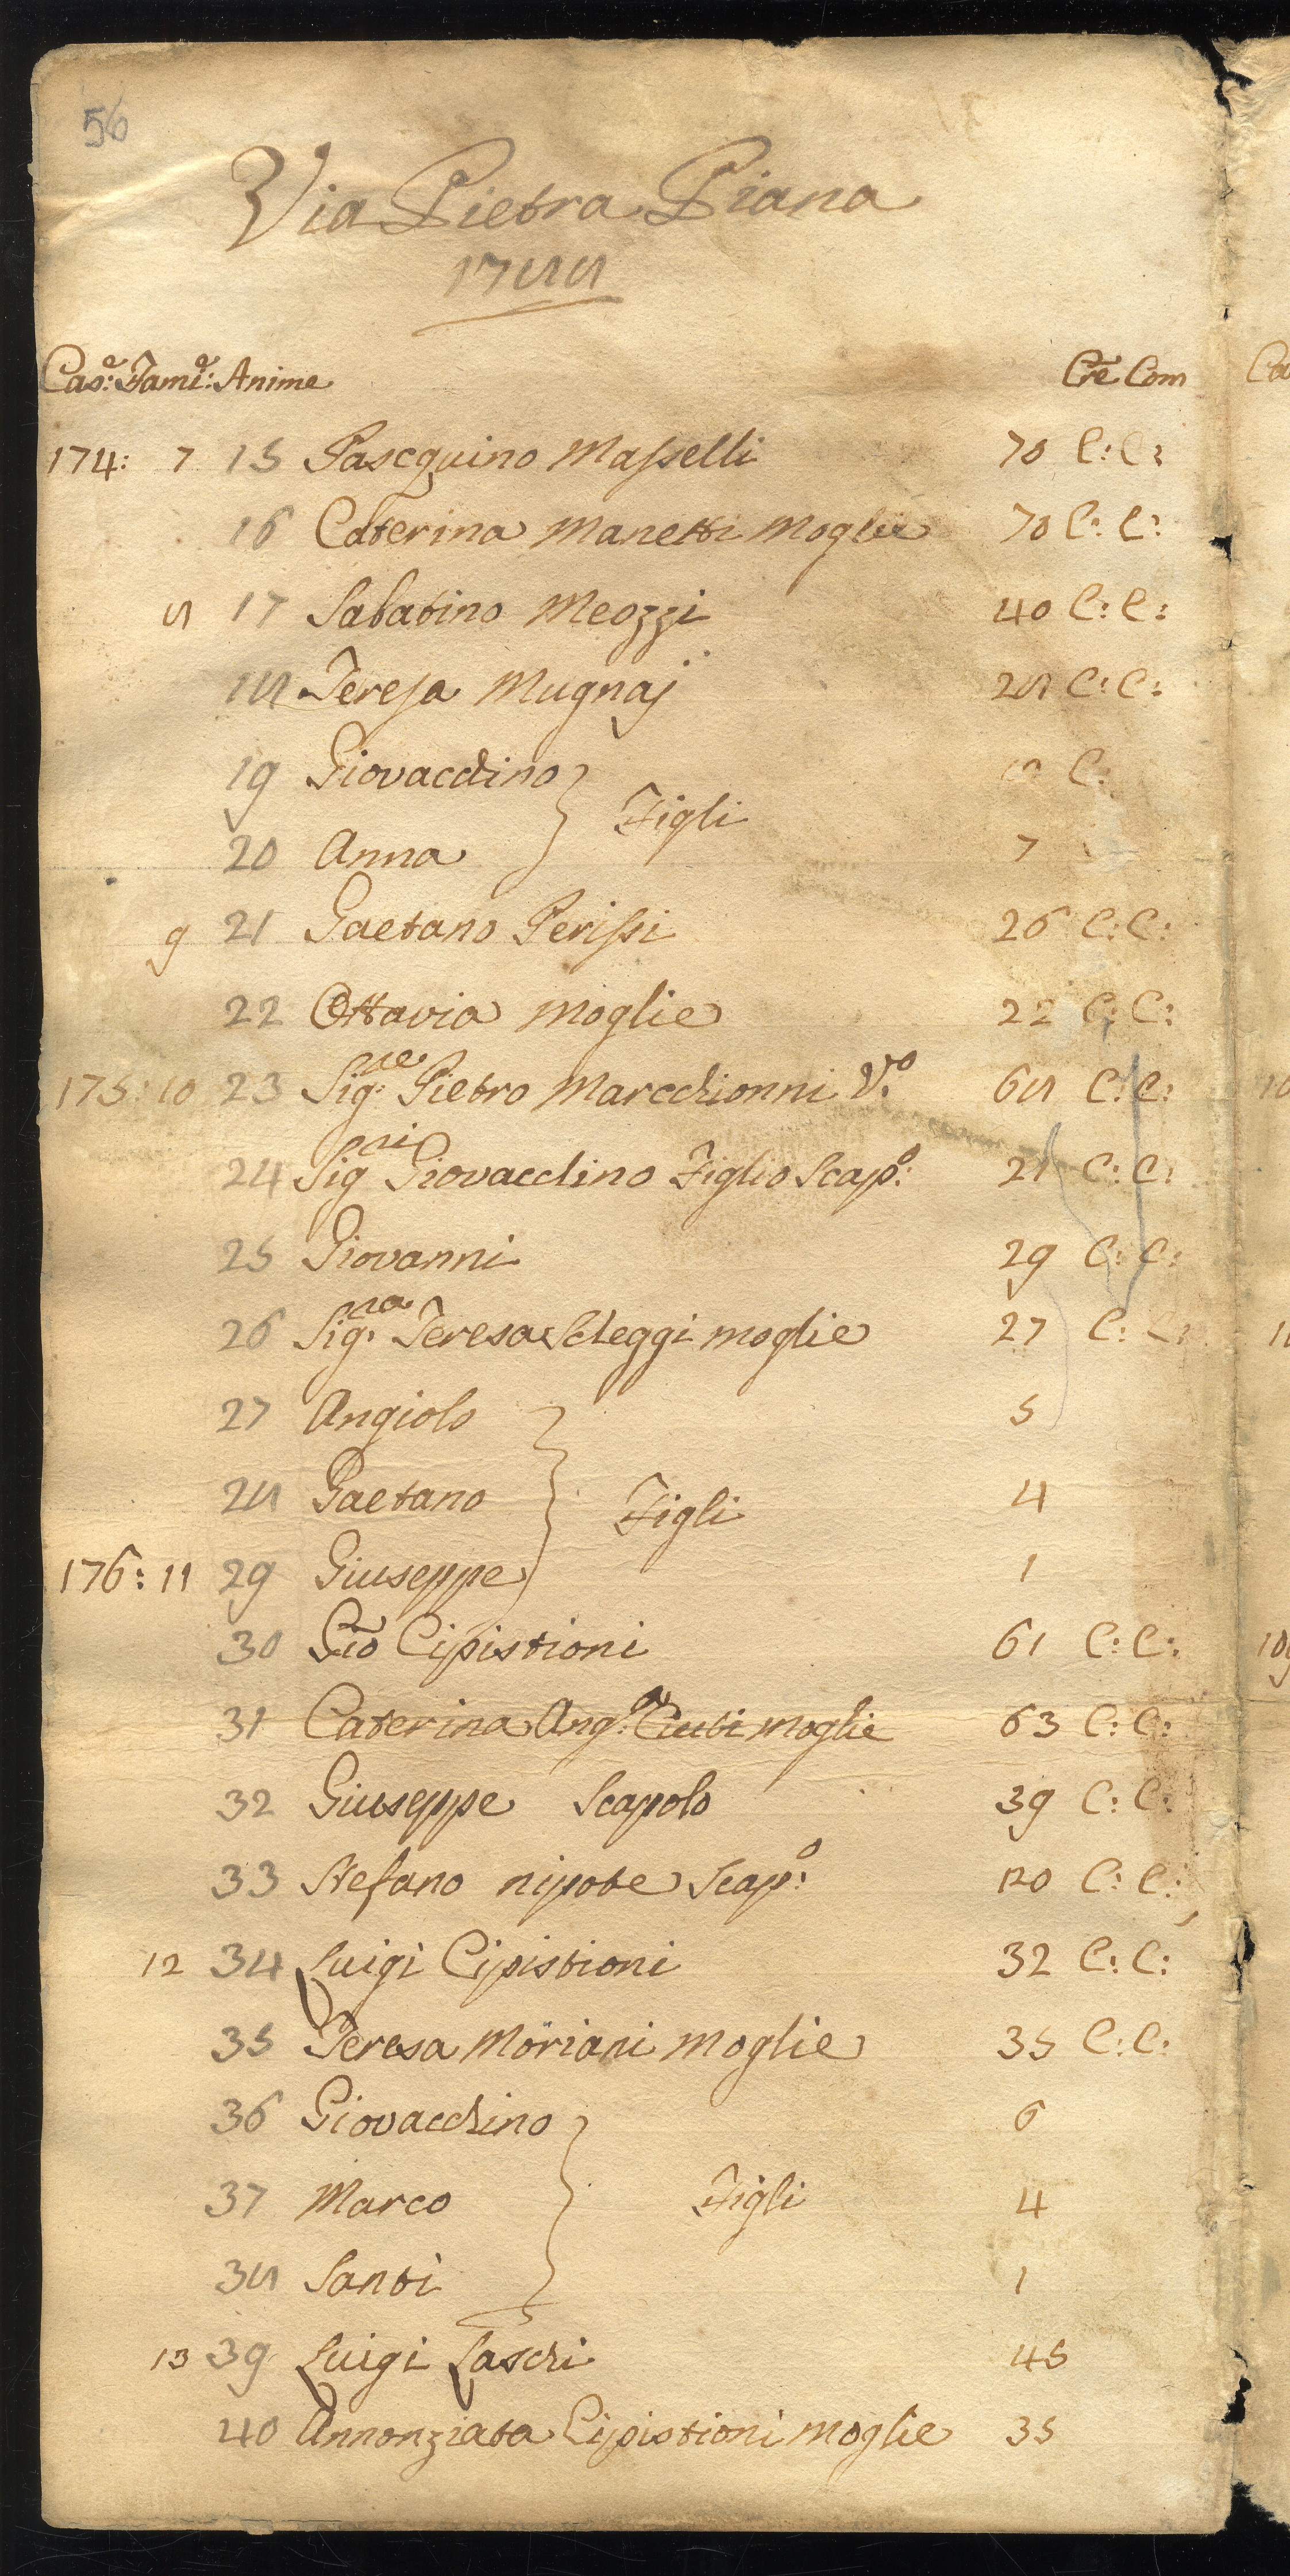 56
Via Pietra Piana
1788
Case: Fame: Anime Cre Com
174: 7 15 Pascquino Masselli 70 C: C:
16 Caterina Manetti Moglie 70 C: C:
8 17 Sabatino Meozzi 40 C: C:
18 Teresa Mugnaj 28 C: C:
19 Giovacchino C:
Figli
20 Anna 7
9 21 Gaetano Perissi 26 C: C:
22 Ottavia Moglie 22 C: C:
175: 10 23 Sig.re Pietro Marcchionni V.o 68 C: C:
24 Sigri Giovacchino Figlio Scap.o: 21 C: C:
25 Giovanni 29 C: C:
26 Sig.ra Teresa Scheggi moglie 27 C: C:
27 Angiolo 5
28 Gaetano 4
Figli
176: 11 29 Giuseppe 1
30 Gio Cipistioni 61 C: C:
31 Caterina Ang.a moglie 63 C: C:
32 Giuseppe Scapolo 39 C: C:
33 Stefano nipote Scap.o C: C:
12 34 Luigi Cipistioni 32 C: C:
35 Teresa Moriani Moglie 35 C: C:
36 Giovacchino 6
37 Marco Figli 4
38 Santi 1
13 39 Luigi Laschi 45
40 Annonziata Cipistioni Moglie 35